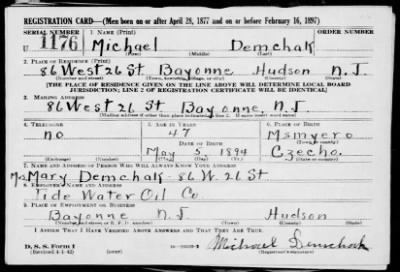 REGISTRATION CARD—(Men born on or after April 28, 1877 and on or before February 16, 1897)
SERIAL NUMBER 1. NAME (Print) ORDER NUMBER
U 1176 Michael Demchak
(First) (Middle) (Last)
2. PLACE OF RESIDENCE (Print)
86 West 26 St Bayonne Hudson N.J.
(Number and street) (Town, township, village, or city) (County) (State)
[THE PLACE OF RESIDENCE GIVEN ON THE LINE ABOVE WILL DETERMINE LOCAL BOARD
JURISDICTION; LINE 2 OF REGISTRATION CERTIFICATE WILL BE IDENTICAL]
3. MAILING ADDRESS
86 West 26 St Bayonne, N.J.
[Mailing address if other than place indicated on line 2. If same insert word same]
4. TELEPHONE 5. AGE IN YEARS 6. PLACE OF BIRTH
no 47 Msmyero
DATE OF BIRTH (Town or county)
May 5, 1894 Czecho
(Exchange) (Number) (Mo.) (Day) (Yr.) (State or country)
7. NAME AND ADDRESS OF PERSON WHO WILL ALWAYS KNOW YOUR ADDRESS
Ms Mary Demchak - 86 W. 26 St
8. EMPLOYER'S NAME AND ADDRESS
Tide Water Oil Co.
9. PLACE OF EMPLOYMENT OR BUSINESS
Bayonne N.J Hudson
(Number and street or R. F. D. number) (Town) (County) (State)
I AFFIRM THAT I HAVE VERIFIED ABOVE ANSWERS AND THAT THEY ARE TRUE.
D. S. S. Form 1
(Revised 4-1-42) Michael Demchak